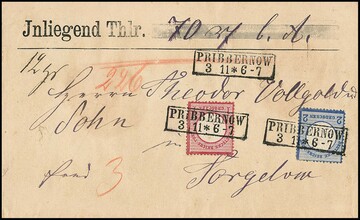 Jnliegend Thlr. 70
PRIBBERNOW
3 11 * 6-7
296
Herrn Theodor Vollgold u
Sohn
PRIBBERNOW
3 11 * 6-7
PRIBBERNOW
3 11 * 6-7
in
3
Torgelow